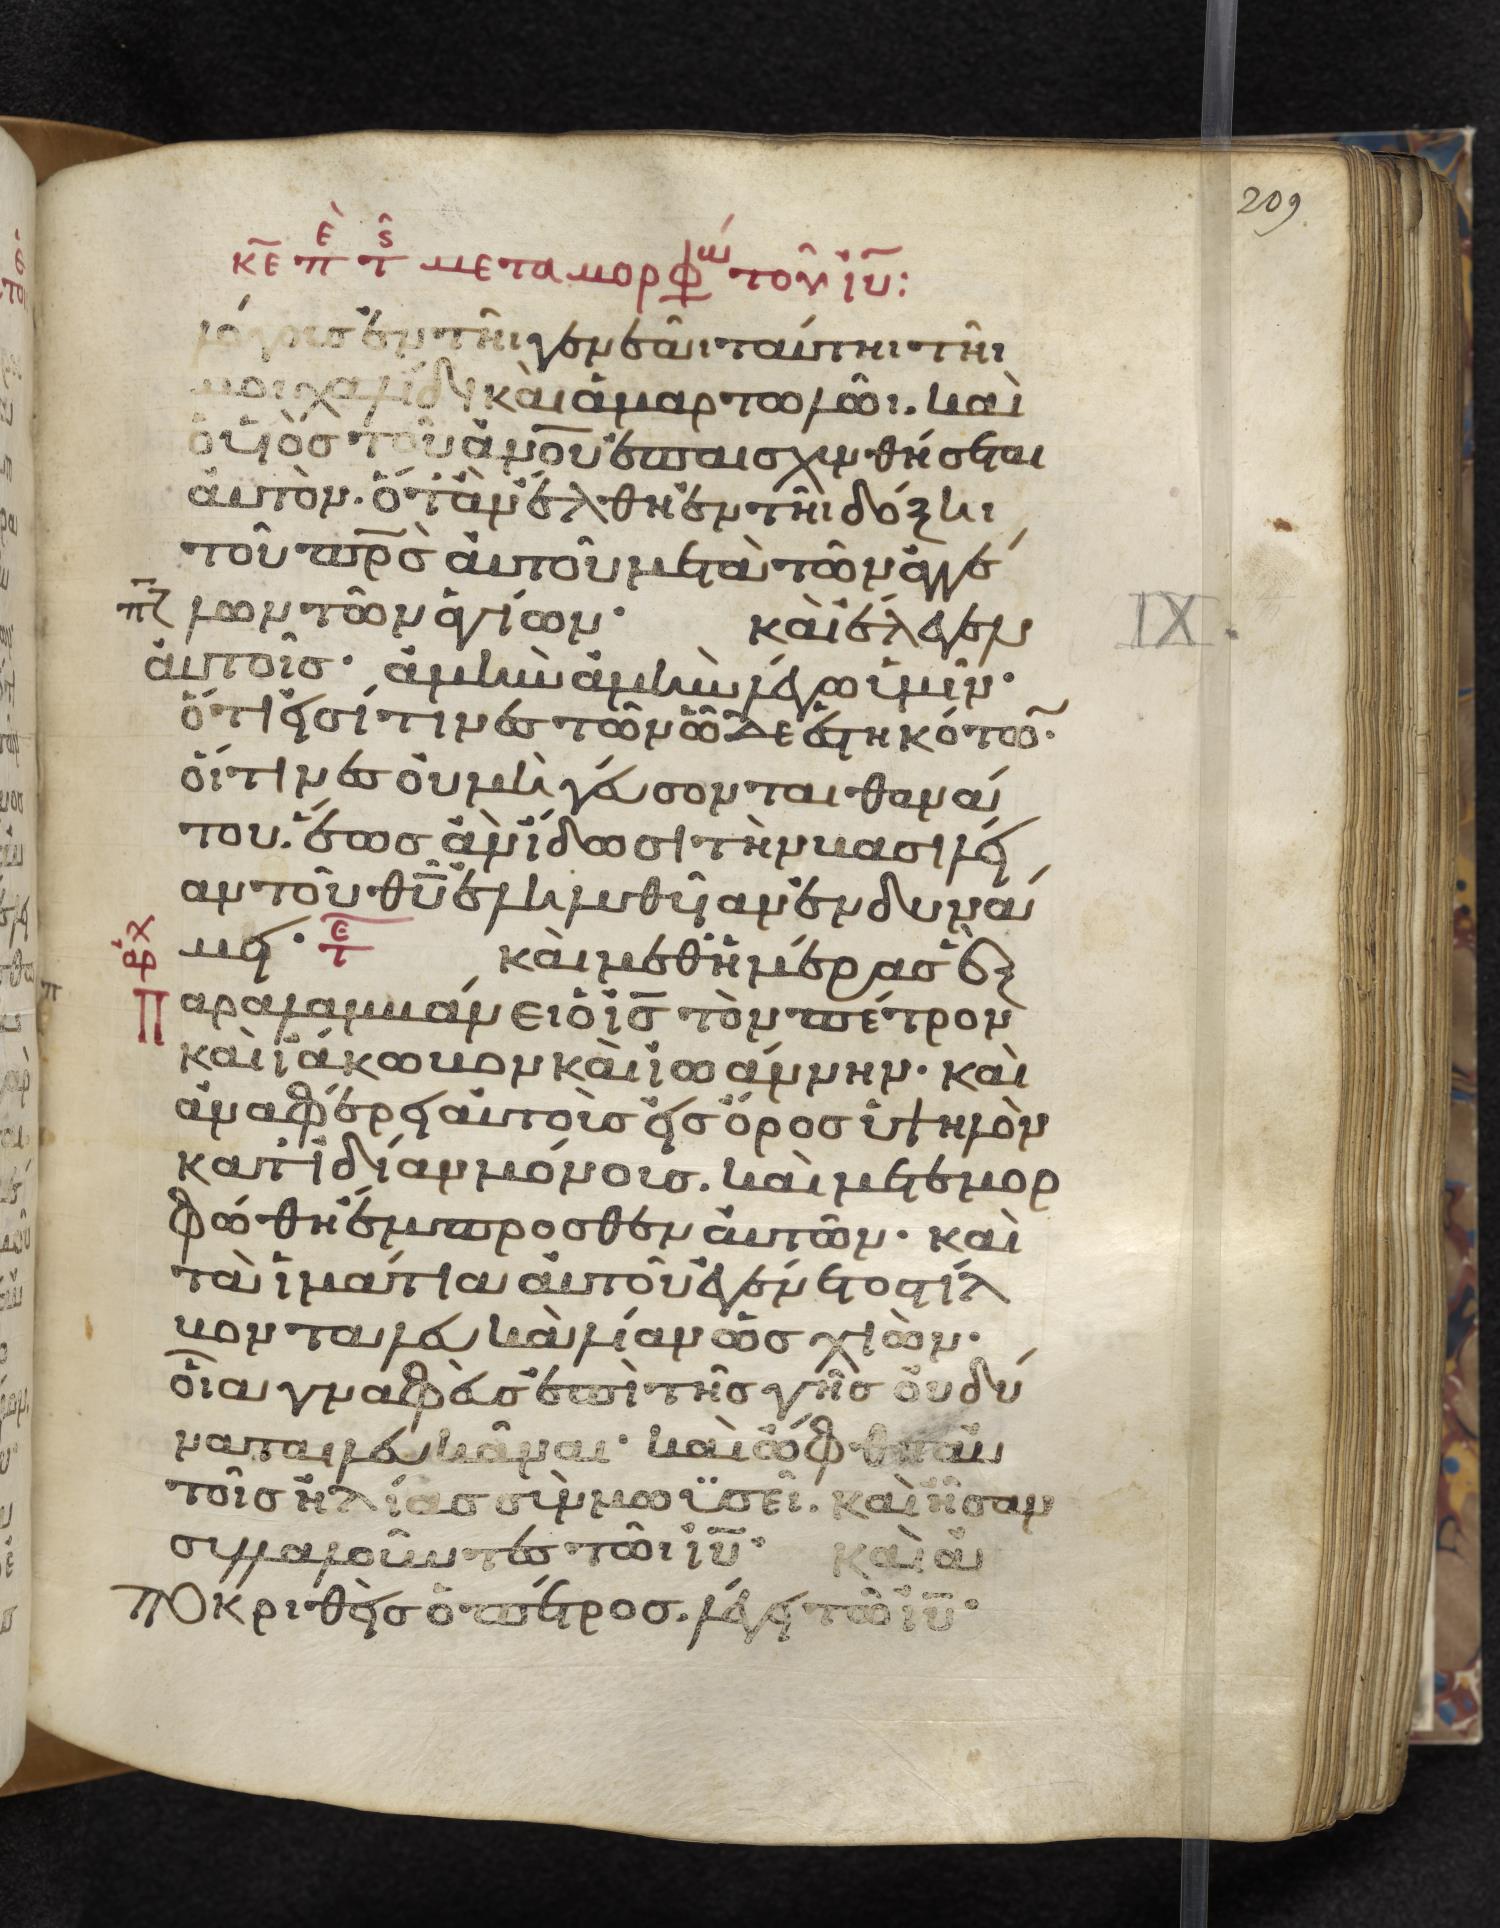 209
κε̄ περὶ τῆς μεταμορφώ τοῦ ἰῡ:
λόγοισ ἐν τῆι γενεᾶι ταύτηι τῆι
μοιχαλίδι καὶ ἁμαρτωλῶι. καὶ
ὁ υἱὸσ τοῦ ἀν̅ο̅υ̅ ἐπαισχυνθήσεται
αὐτὸν. ὅταν ἔλθη ἐν τῆι δόξηι
τοῦ π̅ρ̅σ̅ αὐτοῦ μετὰ τῶν ἀγγέ
πζ
λων τῶν ἁγίων· καὶ ἔλεγεν
IX.
αὐτοῖσ· ἀμὴν ἀμὴν λέγω ὑμῖν·
ὅτι εἰσί τινεσ τῶν ὧδε ἑστηκότω̅·
οἵτινεσ οὐ μὴ γεύσονται θανά
του. ἕωσ ἂν ἴδωσι τὴν βασιλεί
αν τοῦ θ̅υ̅ ἐληλυθυῖαν ἐν δυνά
μει· τε̅ καὶ μεθ ἡμέρασ ἓξ
ἀρχ
Παραλαμβάνει ὁ ι̅σ̅ τὸν πέτρον
καὶ ἰάκωβον καὶ ἰωάννην. καὶ
ἀναφέρει αὐτοὶσ εἰσ ὄροσ ὑψηλὸν
κατ ἰδίαν μόνουσ. καὶ μετεμορ
φώθη ἔμπροσθεν αὐτῶν· καὶ
τὰ ἱμάτια αὐτοῦ ἐγένετο στίλ
βοντα λευκὰ λίαν ὡσ χιὼν·
οἷα γναφεὺσ ἐπὶ τῆσ γῆσ οὐ δύ
ναται λευκᾶναι· καὶ ὤφθη αὐ
τοῖσ ἠλίασ σὺν μωϋσεῖ. καὶ ἦσαν
συλλαλοῦντεσ τῶι ἰ̅υ̅· καὶ ἀ
ποκριθεὶσ ὁ πέτροσ. λέγει τῶ ἰ̅υ̅·